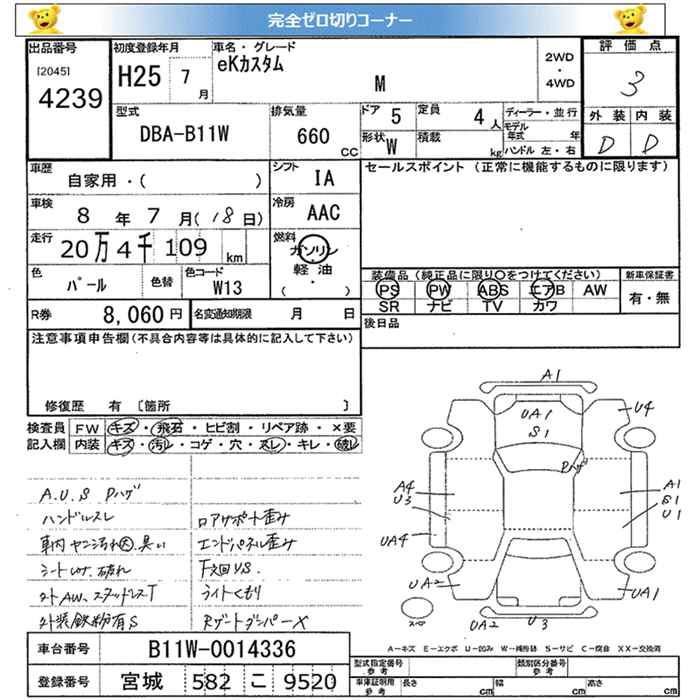 完全ゼロ切りコーナー
出品番号
[2045]
4239
初度登録年月
H25 7 月
車名・グレード
eKカスタム
M
2WD
・
4WD
評価点
3
外装 内装
D D
型式
DBA-B11W
排気量
660 CC
ドア 5
定員 4 人
形状 W
積載 kg
ディーラー・並行
モデル年式 年
ハンドル 左・右
車歴
自家用・( )
シフト
IA
セールスポイント (正常に機能するものに限ります)
車検
8 年 7 月 (18日)
冷房
AAC
走行
20万4千109 km
燃料
ガソリン
軽油
( ・ )
色
パール
色替
色コード
W13
装備品 (純正品に限り○をつけてください)
PS PW ABS エアB AW
SR ナビ TV カワ
新車保証書
有・無
R券 8,060円
名変通知期限 月 日
後日品
注意事項申告欄(不具合内容等は具体的に記入して下さい)
修復歴 有 〔箇所 〕
検査員 FW キズ・飛石・ヒビ割・リペア跡・×要
記入欄 内装 キズ・汚レ・コゲ・穴・スレ・キレ・破レ
A.U.S Pハゲ
ハンドルスレ
車内ヤニ汚れ大.臭い
シートしわ.破れ
外AW、スタッドレスT
外装鉄粉有S
ロアサポート歪み
エンドパネル歪み
下廻りS.
ライトくもり
Rゲートダンパー×
A1
UA1
S1
U4
Pハゲ
A4
U3
A1
S1
U1
UA4
UA2
UA1
スペ
UA2
U3
A－キズ E－エクボ U－凹み W－補修跡 S－サビ C－腐食 XX－交換済
車台番号 B11W-0014336
登録番号 宮城 582 こ 9520
型式指定番号
参考
類別区分番号
車庫証明用
参考
長さ cm
幅 cm
高さ cm